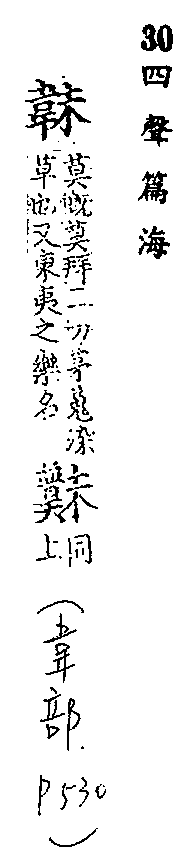 30 四聲篇海
韎
莫慨莫拜二切茅蒐染
草也又東夷之樂名
同
上
(韋部. P530)